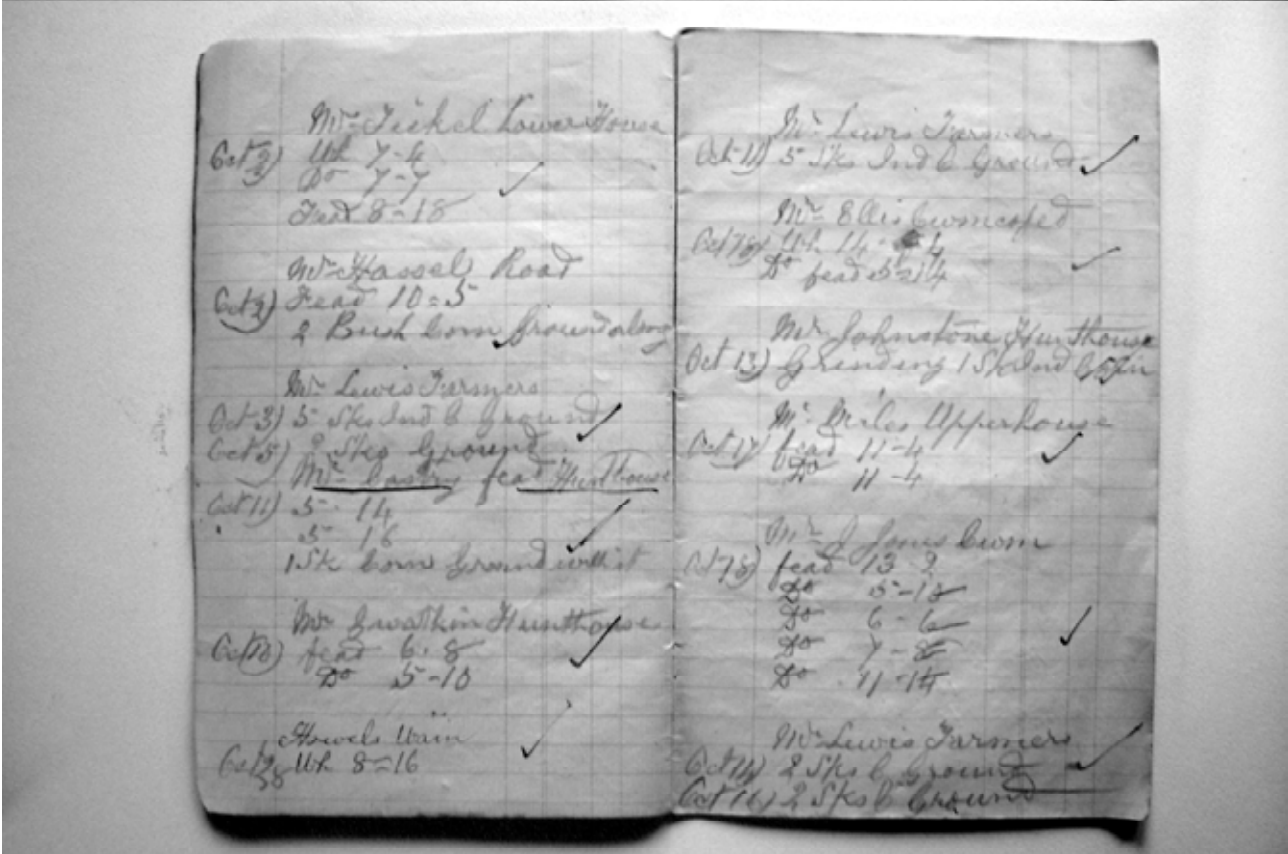 Mr Tickel Lower House
Oct 2) Wh 7-4
Do 7-7
Fead 8-18
Mr Hassels Road
Oct 2) Fead 10-5
2 Bush Corn Ground along
Mr Lewis Farmers
Oct 3) 5 Sks Ind C Ground
Oct 5) 2 Sks Ground
Mr fead Hunthouse
Oct 11) 5-14
5-16
1 Sk Corn Ground with it
Mr Gwatkin Hunthouse
Oct 10) fead 6-8
Do 5-10
Howels Wain
Oct Wh 8-16
Mr Lewis Farmers
Oct 11) 5 Sks Ind C Ground
Mr Ellis
Oct 18) Wh 14-4
Do fead 5-14
Mr Johnstone Hunthouse
Oct 13) Grinding 1 Sk Ind C
Mr Miles Upperhouse
Oct 17) fead 11-4
Do 11-4
Mr J Jones Cwm
Oct 18) fead 13-2
Do 5-18
Do 6-6
Do 7-8
Do 11-14
Mr Lewis Farmers
Oct 14) 2 Sks C Ground
Oct 16) 2 Sks C Ground